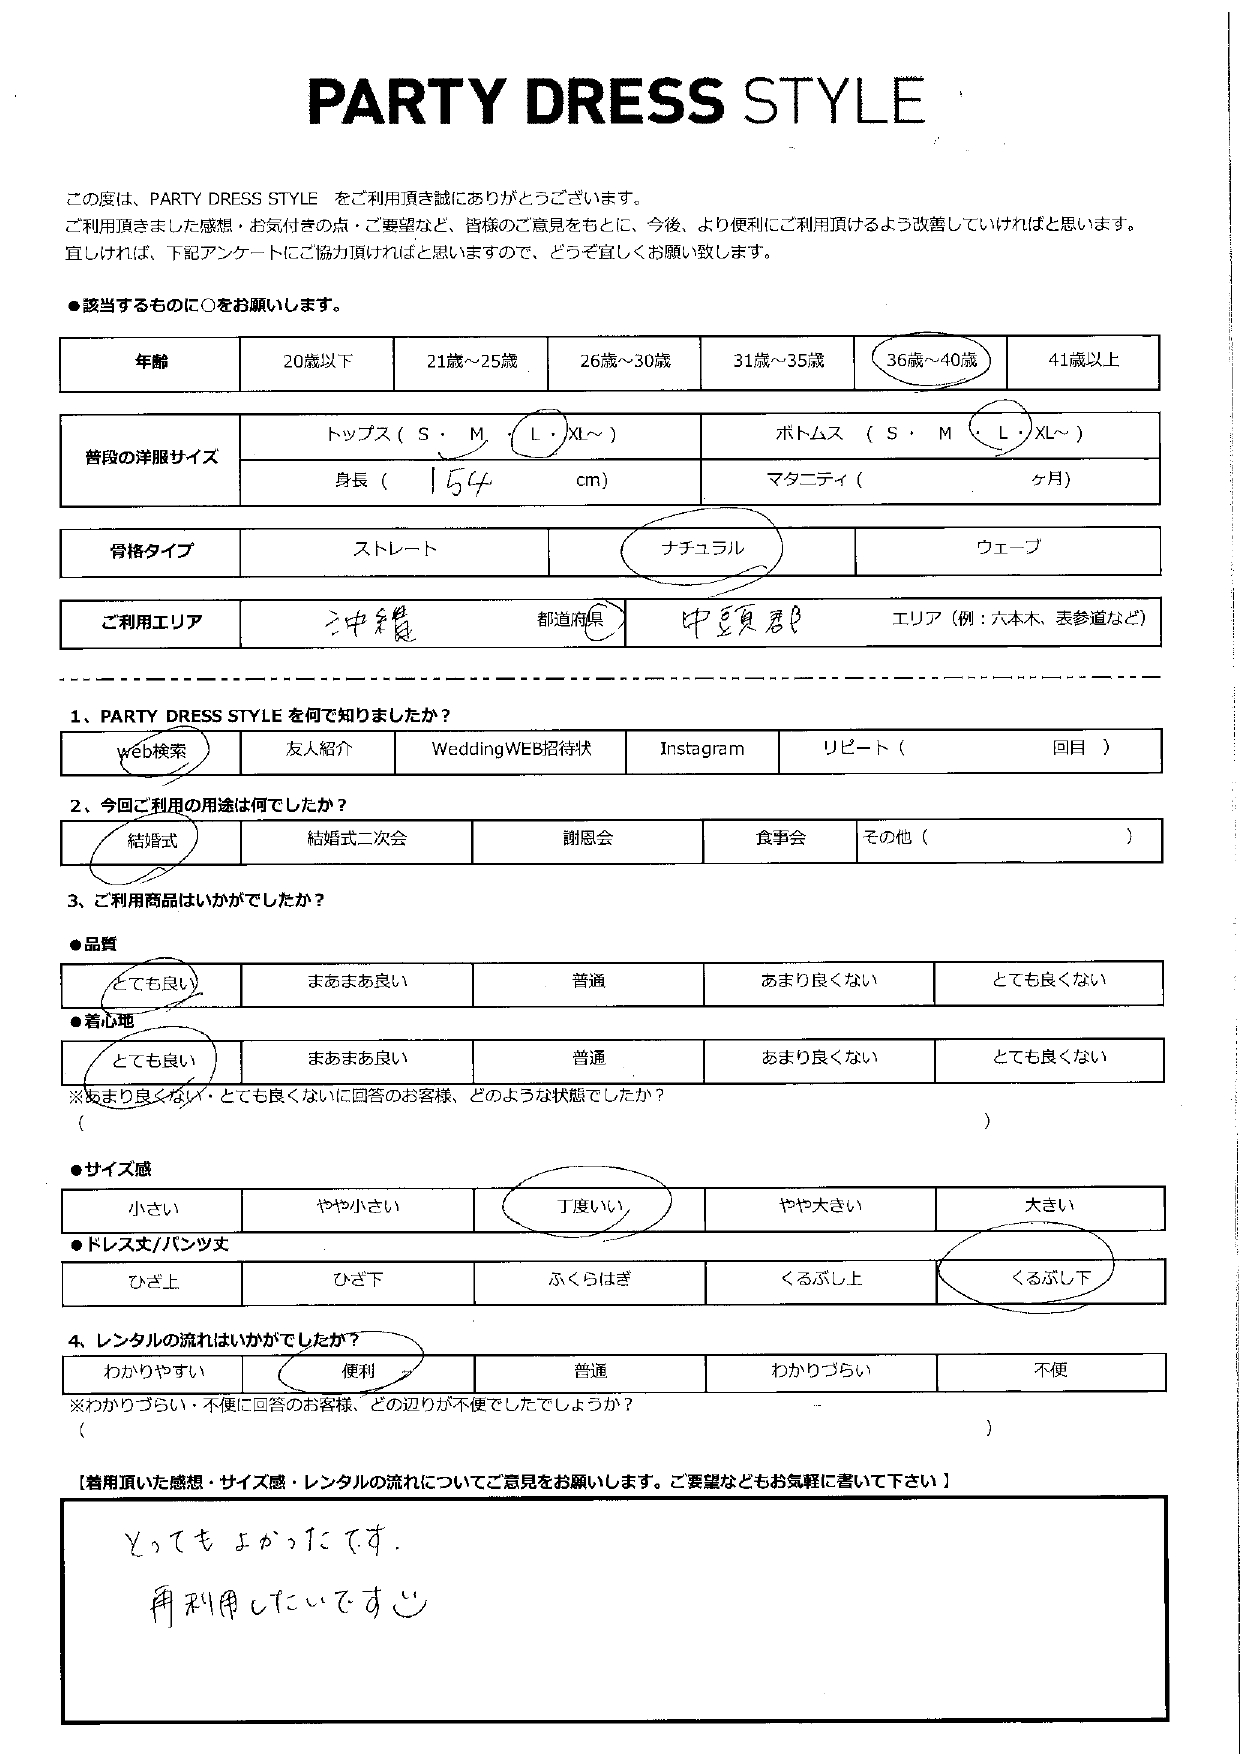 PARTY DRESS STYLE
この度は、PARTY DRESS STYLE　をご利用頂き誠にありがとうございます。
ご利用頂きました感想・お気付きの点・ご要望など、皆様のご意見をもとに、今後、より便利にご利用頂けるよう改善していければと思います。
宜しければ、下記アンケートにご協力頂ければと思いますので、どうぞ宜しくお願い致します。
●該当するものに○をお願いします。
年齢 20歳以下 21歳～25歳 26歳～30歳 31歳～35歳 36歳～40歳 41歳以上
普段の洋服サイズ
トップス ( S ・ M ・ L ・ XL～ ) ボトムス ( S ・ M ・ L ・ XL～ )
身長 ( 154 cm) マタニティ ( ヶ月)
骨格タイプ ストレート ナチュラル ウェーブ
ご利用エリア 沖縄 都道府県 中頭郡 エリア（例：六本木、表参道など）
1、PARTY DRESS STYLE を何で知りましたか？
web検索 友人紹介 WeddingWEB招待状 Instagram リピート（ 回目 ）
2、今回ご利用の用途は何でしたか？
結婚式 結婚式二次会 謝恩会 食事会 その他（ ）
3、ご利用商品はいかがでしたか？
●品質
とても良い まあまあ良い 普通 あまり良くない とても良くない
●着心地
とても良い まあまあ良い 普通 あまり良くない とても良くない
※あまり良くない・とても良くないに回答のお客様、どのような状態でしたか？
（ ）
●サイズ感
小さい やや小さい 丁度いい やや大きい 大きい
●ドレス丈/パンツ丈
ひざ上 ひざ下 ふくらはぎ くるぶし上 くるぶし下
4、レンタルの流れはいかがでしたか？
わかりやすい 便利 普通 わかりづらい 不便
※わかりづらい・不便に回答のお客様、どの辺りが不便でしたでしょうか？
（ ）
【着用頂いた感想・サイズ感・レンタルの流れについてご意見をお願いします。ご要望などもお気軽に書いて下さい 】
とってもよかったです.
再利用したいです